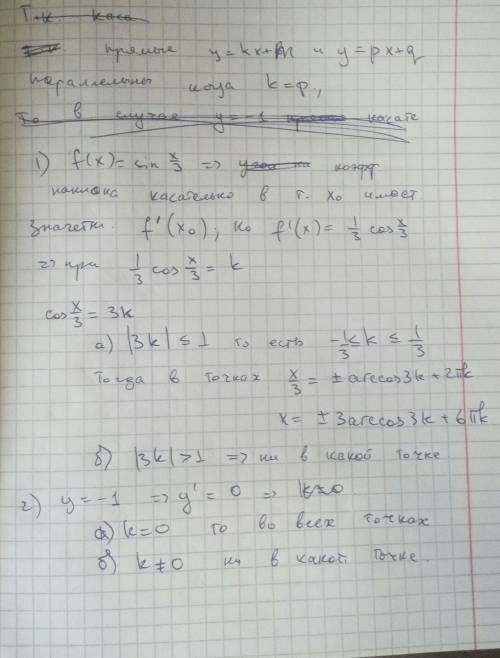 Т.к. каса
прямые y=kx+m и y=px+q
параллельны когда k=p,
То в случае y=-1 касате
1) f(x)=sin x/3 => коэфф
наклона касательно в т. x₀ имеет
значетки. f'(x₀), но f'(x)= 1/3 cos x/3
=> при 1/3 cos x/3 = k
cos x/3 = 3k
а) |3k| ≤ 1 то есть -1/3 ≤ k ≤ 1/3
Тогда в точках x/3 = ± arccos3k + 2πk
x = ± 3arccos3k + 6πk
б) |3k| > 1 => ни в какой точке
2) y=-1 => y' = 0 => k=0
а) k=0 то во всех точках
б) k≠0 ни в какой точке.